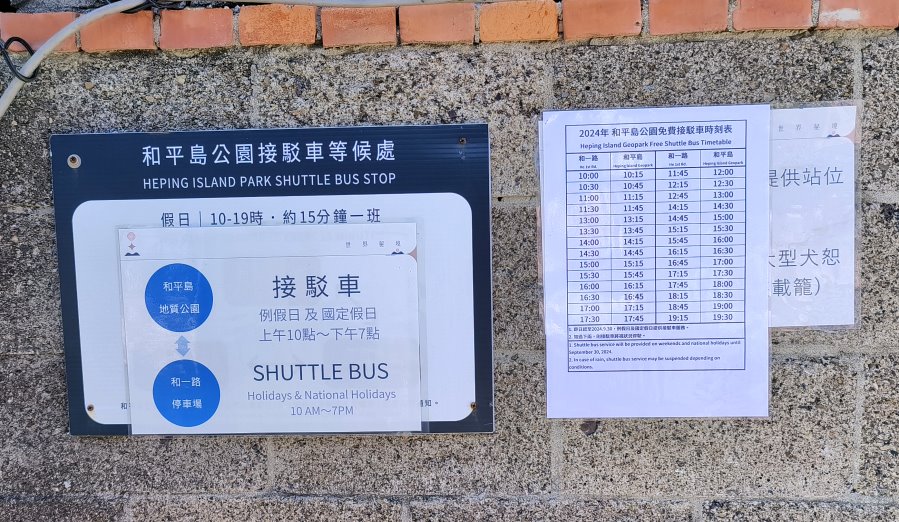 和平島公園接駁車等候處
HEPING ISLAND PARK SHUTTLE BUS STOP
假日｜10-19時・約15分鐘一班
世界秘境
和平島
地質公園
和一路
停車場
接駁車
例假日 及 國定假日
上午10點～下午7點
SHUTTLE BUS
Holidays & National Holidays
10 AM～7PM
和
知。
2024年 和平島公園免費接駁車時刻表
Heping Island Geopark Free Shuttle Bus Timetable
和一路 和平島 和一路 和平島
He 1st Rd. Heping Island Geopark He 1st Rd. Heping Island Geopark
10:00 10:15 11:45 12:00
10:30 10:45 12:15 12:30
11:00 11:15 12:45 13:00
11:30 11:45 14:15 14:30
13:00 13:15 14:45 15:00
13:30 13:45 15:15 15:30
14:00 14:15 15:45 16:00
14:30 14:45 16:15 16:30
15:00 15:15 16:45 17:00
15:30 15:45 17:15 17:30
16:00 16:15 17:45 18:00
16:30 16:45 18:15 18:30
17:00 17:15 18:45 19:00
17:30 17:45 19:15 19:30
1. 即日起至2024.9.30，例假日及國定假日提供接駁車服務。
2. 如遇下雨，則接駁車將視狀況停駛。
1. Shuttle bus service will be provided on weekends and national holidays until
September 30, 2024.
2. In case of rain, shuttle bus service may be suspended depending on
conditions.
世界秘境
提供站位
大型犬恕
載籠）